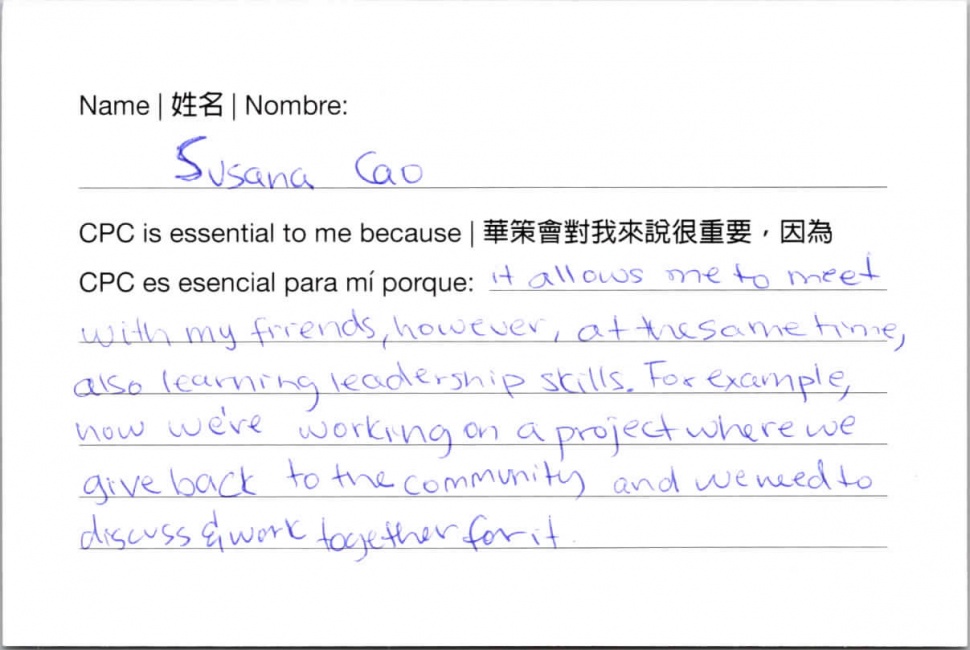 Name | 姓名 | Nombre:
Susana Cao
CPC is essential to me because | 華策會對我來說很重要，因為
CPC es esencial para mí porque: it allows me to meet
with my friends, however, at the same time,
also learning leadership skills. For example,
now we're working on a project where we
give back to the community and we need to
discuss & work together for it.